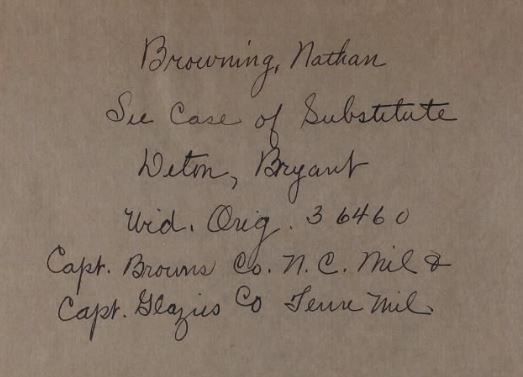 Browning, Nathan
See Case of Substitute
Deton, Bryant
Wid. Orig. 36460
Capt. Browns Co. N.C. Mil &
Capt. Glazies Co Tenn Mil.